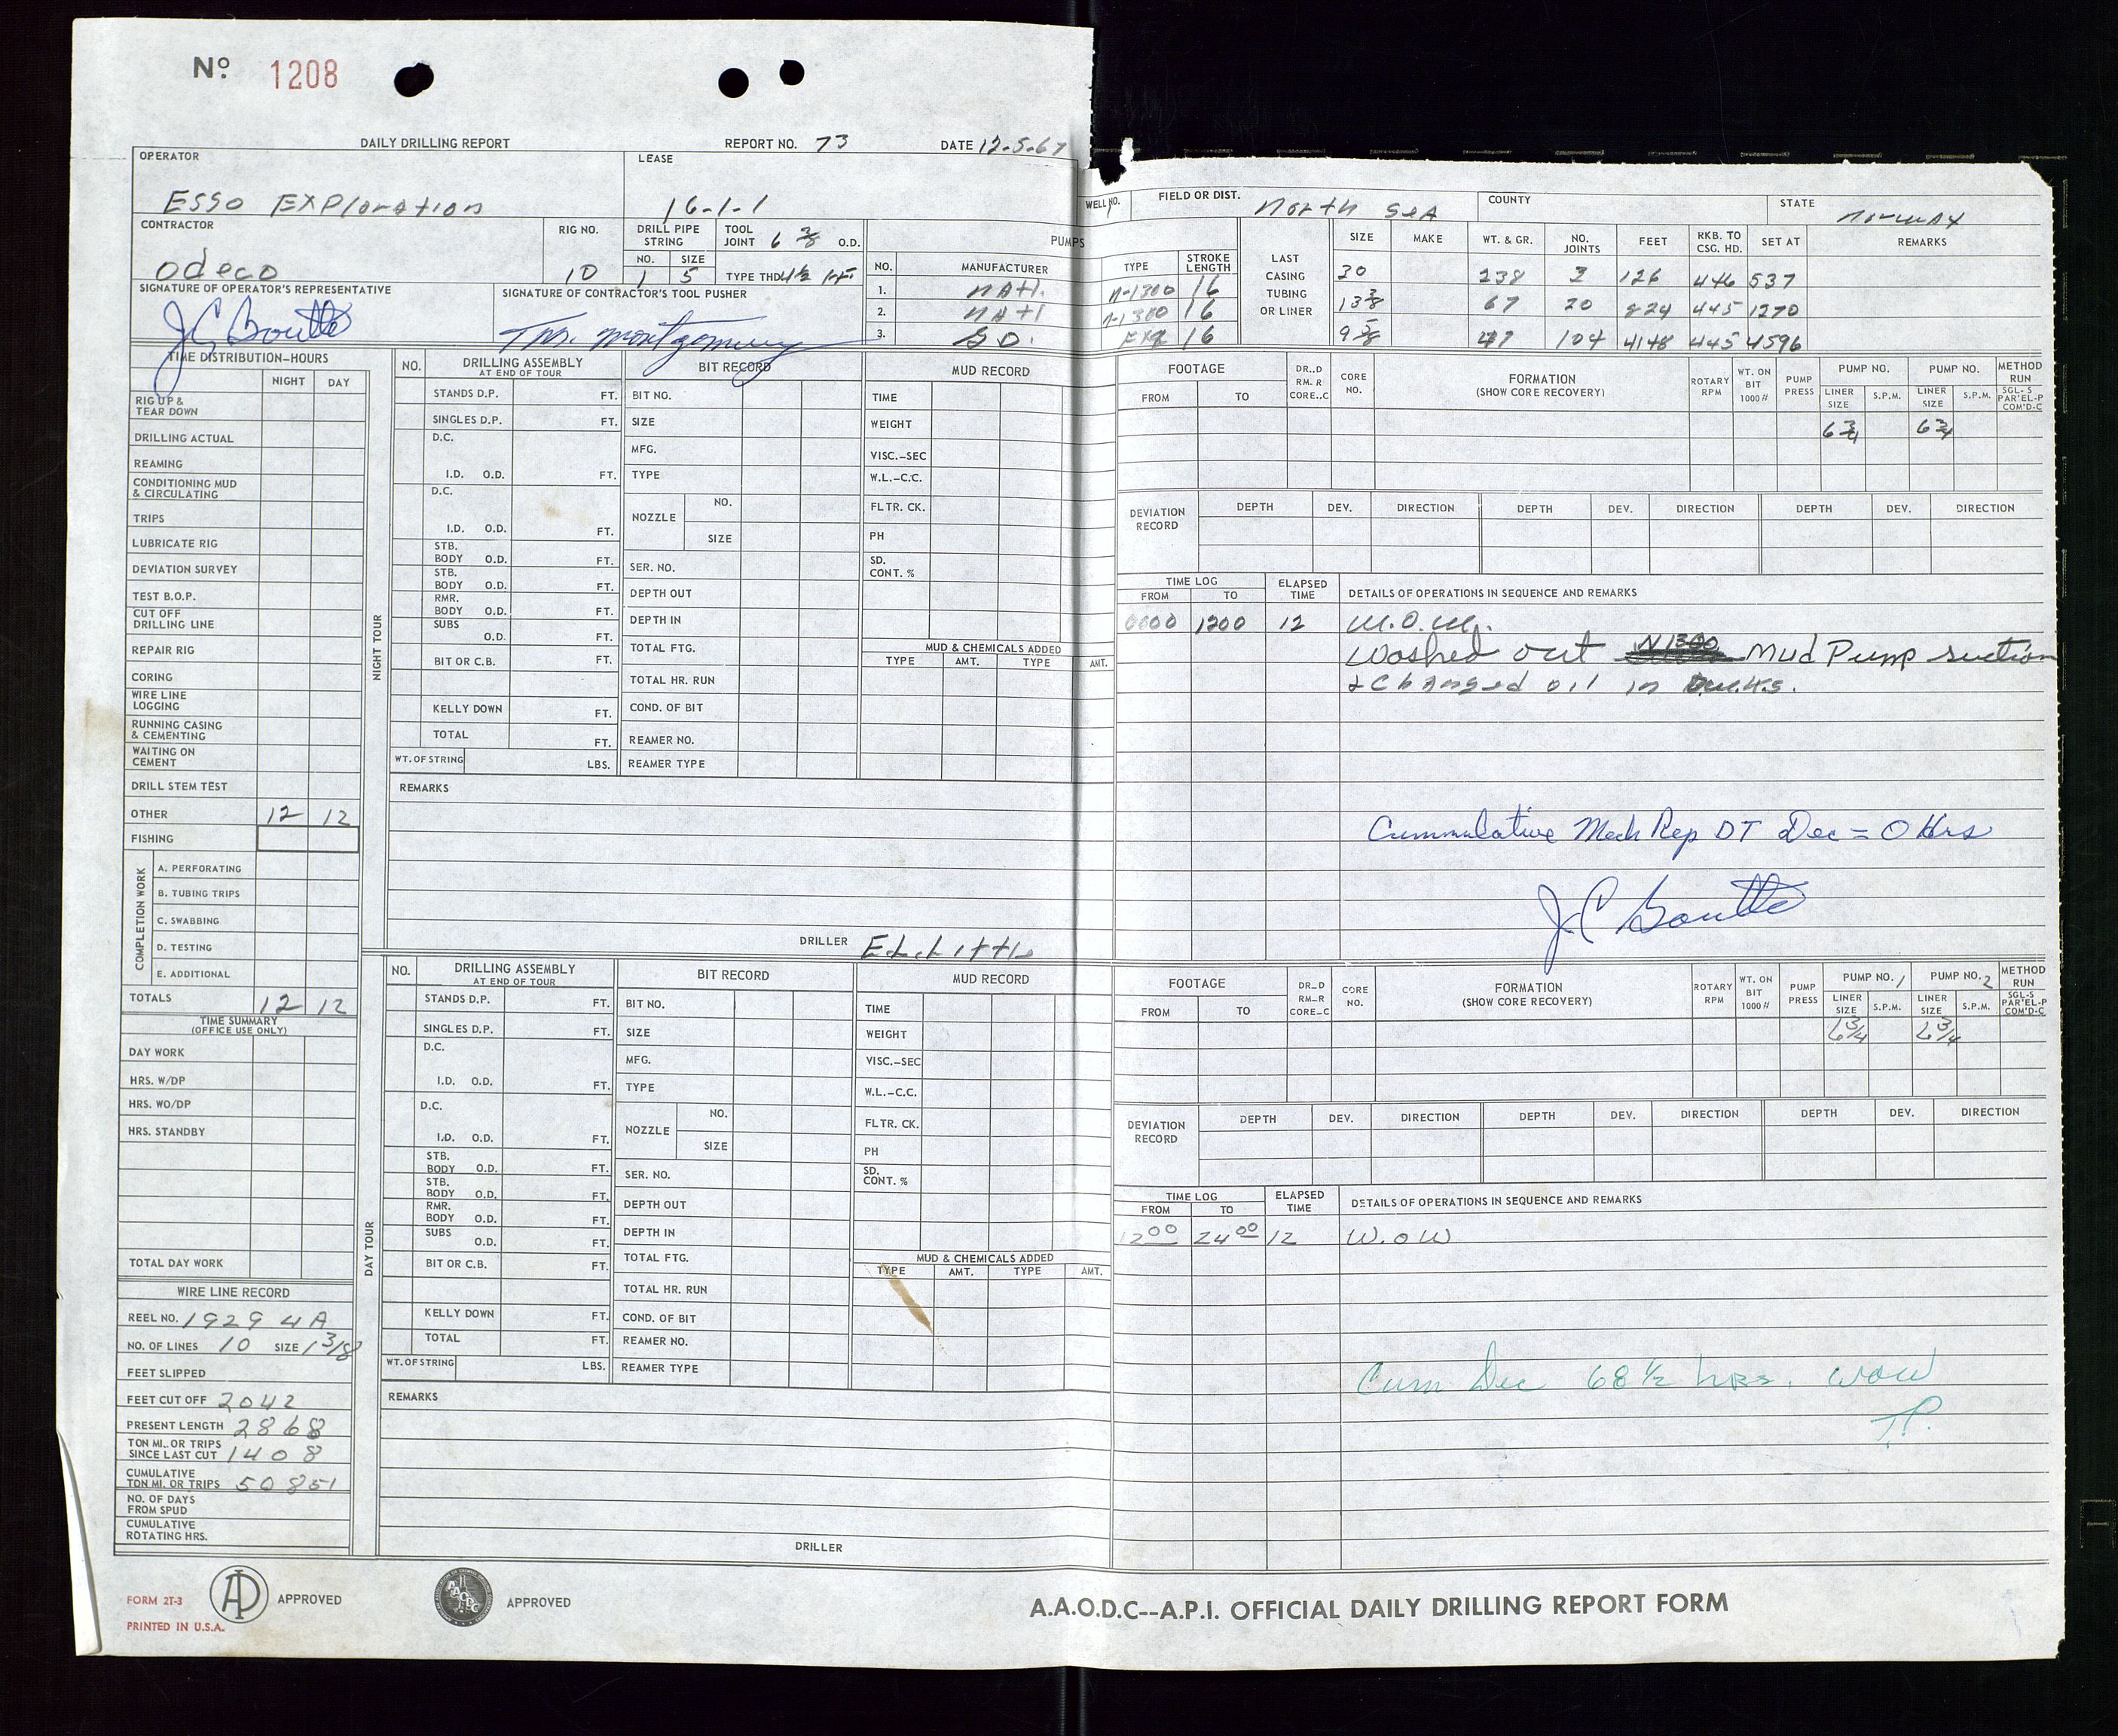 Nº 1208
DAILY DRILLING REPORT REPORT NO. 73 DATE 12-5-67
OPERATOR LEASE WELL NO. FIELD OR DIST. COUNTY STATE
Esso EXPloration 16-1-1 1 North SEA Norway
CONTRACTOR RIG NO. DRILL PIPE STRING TOOL JOINT 6 3/8 O.D. PUMPS
Odeco 10 NO. SIZE 1 5 TYPE THD 4½
NO. MANUFACTURER TYPE STROKE LENGTH
1. NATL. N-1300 16
2. NATL N-1300 16
3. G D. 16
LAST CASING TUBING OR LINER
SIZE MAKE WT. & GR. NO. JOINTS FEET RKB. TO CSG. HD. SET AT REMARKS
30 238 3 126 446 537
13 3/8 67 20 824 445 1270
9 5/8 47 104 4148 445 4596
SIGNATURE OF OPERATOR'S REPRESENTATIVE SIGNATURE OF CONTRACTOR'S TOOL PUSHER
J C Boutte Montgomery
TIME DISTRIBUTION-HOURS
NIGHT DAY
RIG UP & TEAR DOWN
DRILLING ACTUAL
REAMING
CONDITIONING MUD & CIRCULATING
TRIPS
LUBRICATE RIG
DEVIATION SURVEY
TEST B.O.P.
CUT OFF DRILLING LINE
REPAIR RIG
CORING
WIRE LINE LOGGING
RUNNING CASING & CEMENTING
WAITING ON CEMENT
DRILL STEM TEST
OTHER 12 12
FISHING
COMPLETION WORK
A. PERFORATING
B. TUBING TRIPS
C. SWABBING
D. TESTING
E. ADDITIONAL
TOTALS 12 12
TIME SUMMARY
(OFFICE USE ONLY)
DAY WORK
HRS. W/DP
HRS. WO/DP
HRS. STANDBY
TOTAL DAY WORK
WIRE LINE RECORD
REEL NO. 1929 4A
NO. OF LINES 10 SIZE 1 3/8
FEET SLIPPED
FEET CUT OFF 2042
PRESENT LENGTH 2868
TON MI. OR TRIPS SINCE LAST CUT 1408
CUMULATIVE TON MI. OR TRIPS 50851
NO. OF DAYS FROM SPUD
CUMULATIVE ROTATING HRS.
NIGHT TOUR
NO. DRILLING ASSEMBLY AT END OF TOUR
STANDS D.P. FT.
SINGLES D.P. FT.
D.C.
I.D. O.D. FT.
D.C.
I.D. O.D. FT.
STB. BODY O.D. FT.
STB. BODY O.D. FT.
RMR. BODY O.D. FT.
SUBS O.D. FT.
BIT OR C.B. FT.
KELLY DOWN FT.
TOTAL FT.
WT. OF STRING LBS.
BIT RECORD
BIT NO.
SIZE
MFG.
TYPE
NOZZLE NO.
SIZE
SER. NO.
DEPTH OUT
DEPTH IN
TOTAL FTG.
TOTAL HR. RUN
COND. OF BIT
REAMER NO.
REAMER TYPE
MUD RECORD
TIME
WEIGHT
VISC.-SEC
W.L.-C.C.
FLTR. CK.
PH
SD. CONT. %
MUD & CHEMICALS ADDED
TYPE AMT. TYPE AMT.
REMARKS
DRILLER Ed Little
FOOTAGE DR..D RM..R CORE..C CORE NO. FORMATION (SHOW CORE RECOVERY) ROTARY RPM WT. ON BIT 1000 # PUMP PRESS PUMP NO. PUMP NO. METHOD RUN
FROM TO LINER SIZE S.P.M. LINER SIZE S.P.M. SGL-S PAR'EL-P COM'D-C
6 3/4 6 3/4
DEVIATION RECORD DEPTH DEV. DIRECTION DEPTH DEV. DIRECTION DEPTH DEV. DIRECTION
TIME LOG ELAPSED TIME DETAILS OF OPERATIONS IN SEQUENCE AND REMARKS
FROM TO
0000 1200 12 W.O.W.
Washed out N 1300 Mud Pump suction
& Changed oil in
Cummulative Mech Rep DT Dec = 0 Hrs
J C Boutte
DAY TOUR
NO. DRILLING ASSEMBLY AT END OF TOUR
STANDS D.P. FT.
SINGLES D.P. FT.
D.C.
I.D. O.D. FT.
D.C.
I.D. O.D. FT.
STB. BODY O.D. FT.
STB. BODY O.D. FT.
RMR. BODY O.D. FT.
SUBS O.D. FT.
BIT OR C.B. FT.
KELLY DOWN FT.
TOTAL FT.
WT. OF STRING LBS.
BIT RECORD
BIT NO.
SIZE
MFG.
TYPE
NOZZLE NO.
SIZE
SER. NO.
DEPTH OUT
DEPTH IN
TOTAL FTG.
TOTAL HR. RUN
COND. OF BIT
REAMER NO.
REAMER TYPE
MUD RECORD
TIME
WEIGHT
VISC.-SEC
W.L.-C.C.
FLTR. CK.
PH
SD. CONT. %
MUD & CHEMICALS ADDED
TYPE AMT. TYPE AMT.
REMARKS
DRILLER
FOOTAGE DR...D RM...R CORE...C CORE NO. FORMATION (SHOW CORE RECOVERY) ROTARY RPM WT. ON BIT 1000 # PUMP PRESS PUMP NO. 1 PUMP NO. 2 METHOD RUN
FROM TO LINER SIZE S.P.M. LINER SIZE S.P.M. SGL-S PAR'EL-P COM'D-C
6 3/4 6 3/4
DEVIATION RECORD DEPTH DEV. DIRECTION DEPTH DEV. DIRECTION DEPTH DEV. DIRECTION
TIME LOG ELAPSED TIME DETAILS OF OPERATIONS IN SEQUENCE AND REMARKS
FROM TO
1200 2400 12 W.O.W
Cum Dec 68 ½ hrs. WOW
FORM 2T-3
PRINTED IN U.S.A.
API APPROVED AAODC APPROVED
A.A.O.D.C--A.P.I. OFFICIAL DAILY DRILLING REPORT FORM